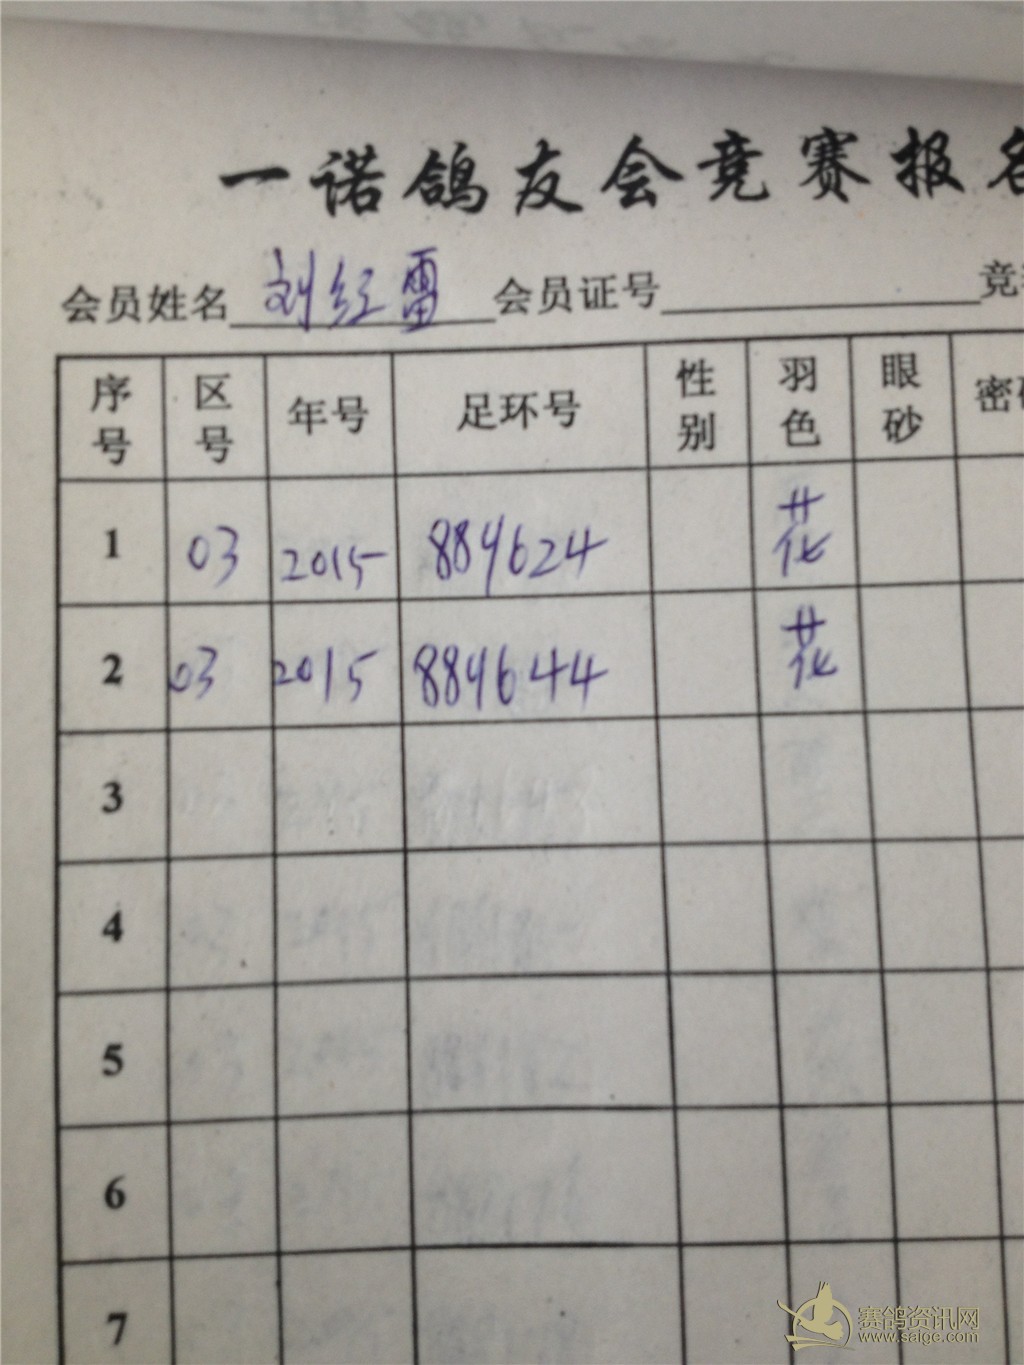 一诺鸽友会竞赛报名
会员姓名 刘红雷 会员证号 竞
序号 区号 年号 足环号 性别 羽色 眼砂 密
1 03 2015 889624 花
2 03 2015 889644 花
3
4
5
6
7
赛鸽资讯网
www.saige.com